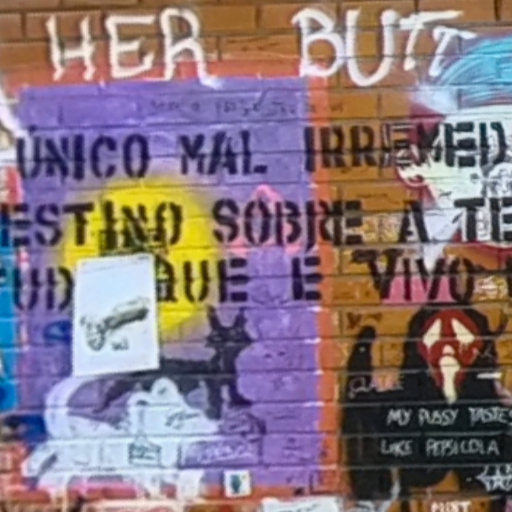 HER BUTT
ÚNICO MAL IRREMED
ESTINO SOBRE A TE
TUDO QUE E VIVO
MY PUSSY TASTES
LIKE PEPSICOLA